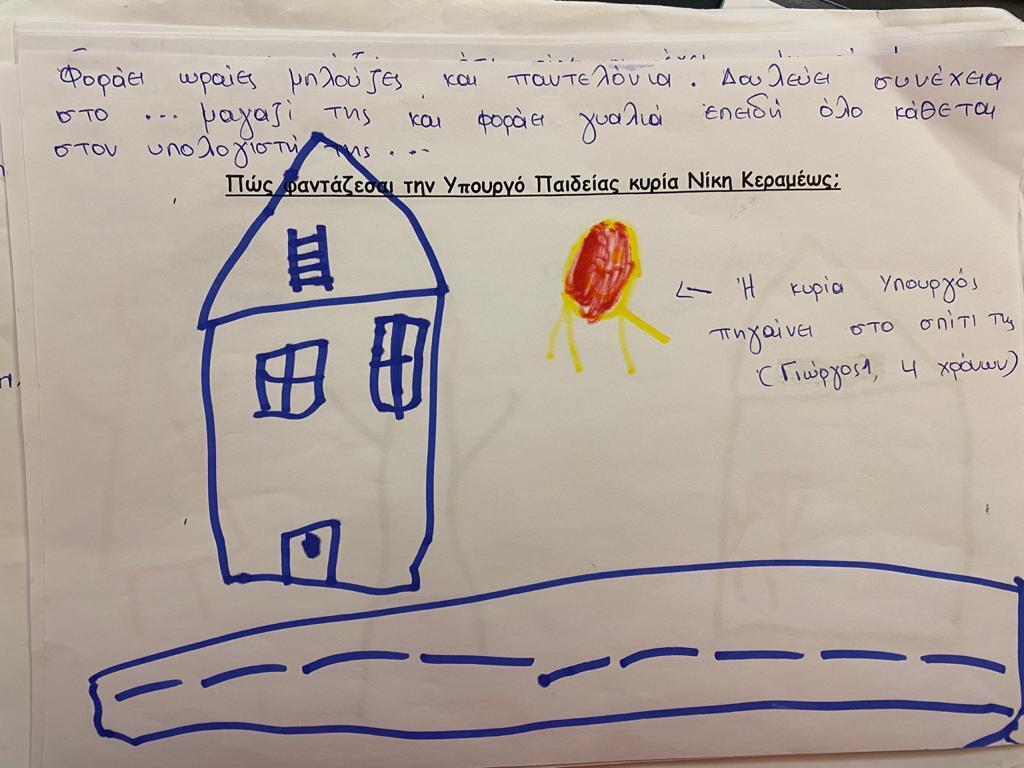 Φοράει ωραίες μπλούζες και παντελόνια. Δουλεύει συνέχεια
στο ... μαγαζί της και φοράει γυαλιά επειδή όλο κάθεται
στον υπολογιστή της ...
Πώς φαντάζεσαι την Υπουργό Παιδείας κυρία Νίκη Κεραμέως;
← Η κυρία Υπουργός
πηγαίνει στο σπίτι της
(Γιώργος1, 4 χρόνων)